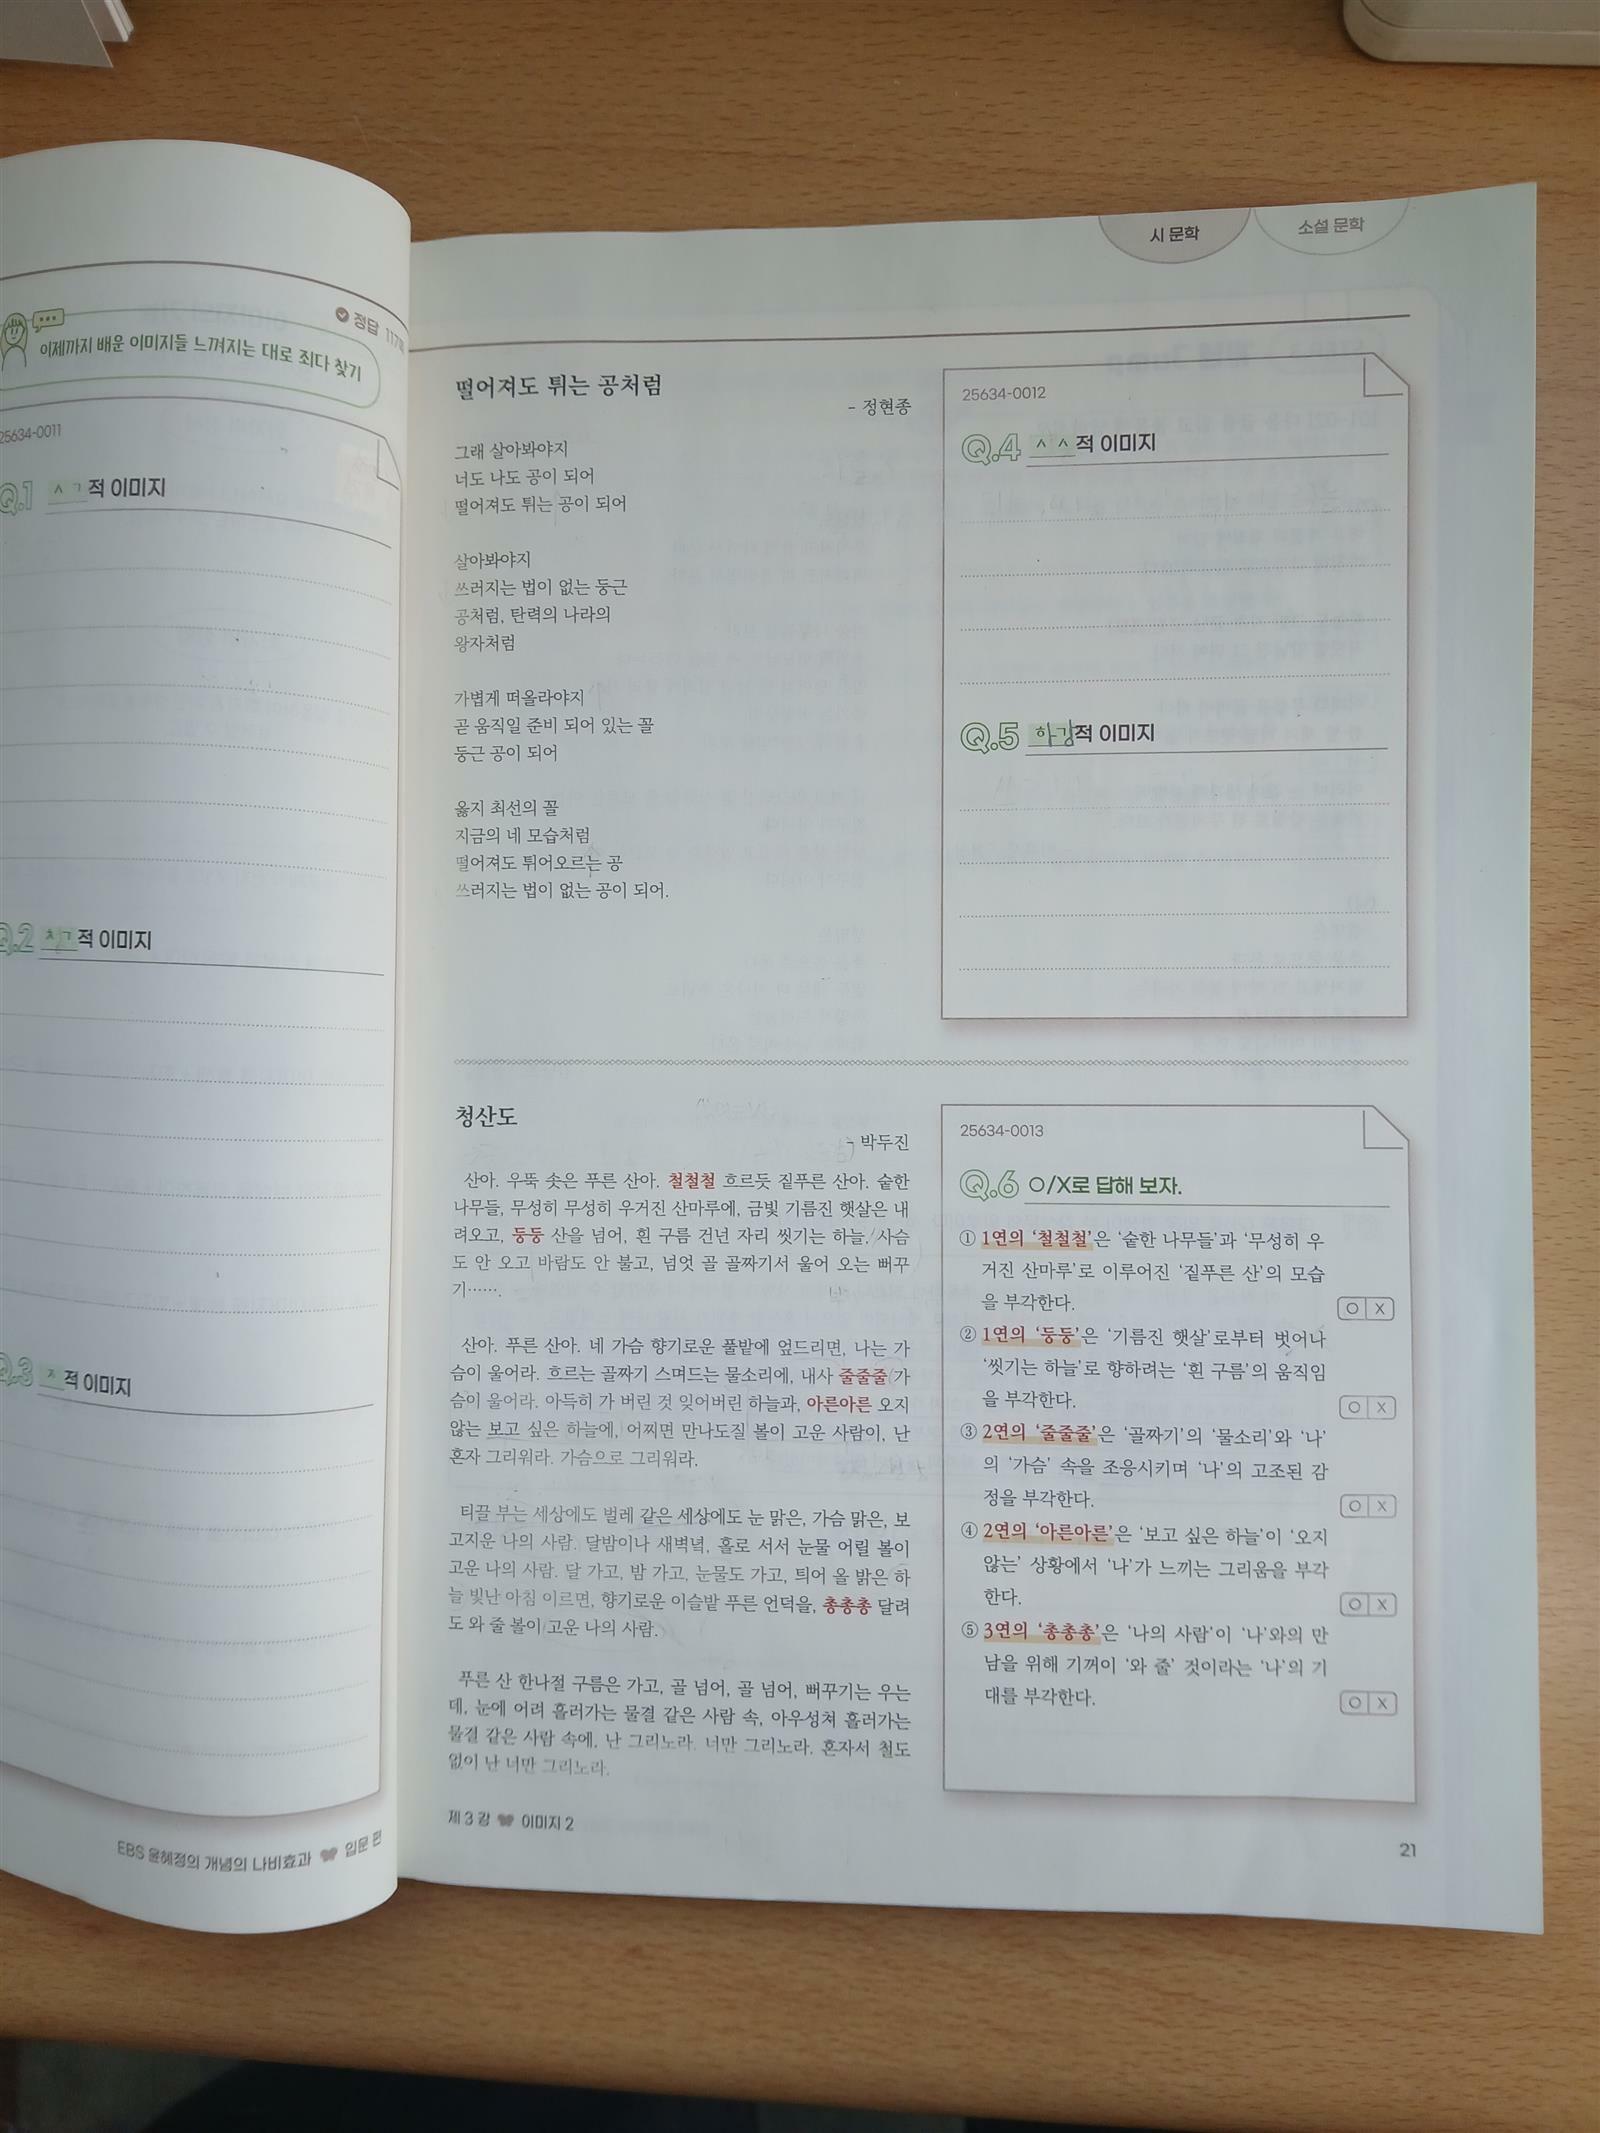 정답 117쪽
이제까지 배운 이미지들 느껴지는 대로 죄다 찾기
25634-0011
Q.1 ㅅㄱ적 이미지
Q.2 ㅊㄱ적 이미지
Q.3 ㅈ적 이미지
EBS 윤혜정의 개념의 나비효과 입문 편
시 문학
소설 문학
떨어져도 튀는 공처럼
- 정현종
그래 살아봐야지
너도 나도 공이 되어
떨어져도 튀는 공이 되어
살아봐야지
쓰러지는 법이 없는 둥근
공처럼, 탄력의 나라의
왕자처럼
가볍게 떠올라야지
곧 움직일 준비 되어 있는 꼴
둥근 공이 되어
옳지 최선의 꼴
지금의 네 모습처럼
떨어져도 튀어오르는 공
쓰러지는 법이 없는 공이 되어.
25634-0012
Q.4 ㅅㅅ적 이미지
Q.5 하강적 이미지
청산도
- 박두진
산아. 우뚝 솟은 푸른 산아. 철철철 흐르듯 짙푸른 산아. 숱한
나무들, 무성히 무성히 우거진 산마루에, 금빛 기름진 햇살은 내
려오고, 둥둥 산을 넘어, 흰 구름 건넌 자리 씻기는 하늘. 사슴
도 안 오고 바람도 안 불고, 넘엇 골 골짜기서 울어 오는 뻐꾸
기…….
산아. 푸른 산아. 네 가슴 향기로운 풀밭에 엎드리면, 나는 가
슴이 울어라. 흐르는 골짜기 스며드는 물소리에, 내사 줄줄줄 가
슴이 울어라. 아득히 가 버린 것 잊어버린 하늘과, 아른아른 오지
않는 보고 싶은 하늘에, 어찌면 만나도질 볼이 고운 사람이, 난
혼자 그리워라. 가슴으로 그리워라.
티끌 부는 세상에도 벌레 같은 세상에도 눈 맑은, 가슴 맑은, 보
고지운 나의 사람. 달밤이나 새벽녘, 홀로 서서 눈물 어릴 볼이
고운 나의 사람. 달 가고, 밤 가고, 눈물도 가고, 틔어 올 밝은 하
늘 빛난 아침 이르면, 향기로운 이슬밭 푸른 언덕을, 총총총 달려
도 와 줄 볼이 고운 나의 사람.
푸른 산 한나절 구름은 가고, 골 넘어, 골 넘어, 뻐꾸기는 우는
데, 눈에 어려 흘러가는 물결 같은 사람 속, 아우성쳐 흘러가는
물결 같은 사람 속에, 난 그리노라. 너만 그리노라. 혼자서 철도
없이 난 너만 그리노라.
25634-0013
Q.6 O/X로 답해 보자.
① 1연의 '철철철'은 '숱한 나무들'과 '무성히 우
거진 산마루'로 이루어진 '짙푸른 산'의 모습
을 부각한다. O X
② 1연의 '둥둥'은 '기름진 햇살'로부터 벗어나
'씻기는 하늘'로 향하려는 '흰 구름'의 움직임
을 부각한다. O X
③ 2연의 '줄줄줄'은 '골짜기'의 '물소리'와 '나'
의 '가슴' 속을 조응시키며 '나'의 고조된 감
정을 부각한다. O X
④ 2연의 '아른아른'은 '보고 싶은 하늘'이 '오지
않는' 상황에서 '나'가 느끼는 그리움을 부각
한다. O X
⑤ 3연의 '총총총'은 '나의 사람'이 '나'와의 만
남을 위해 기꺼이 '와 줄' 것이라는 '나'의 기
대를 부각한다. O X
제 3 강 이미지 2
21